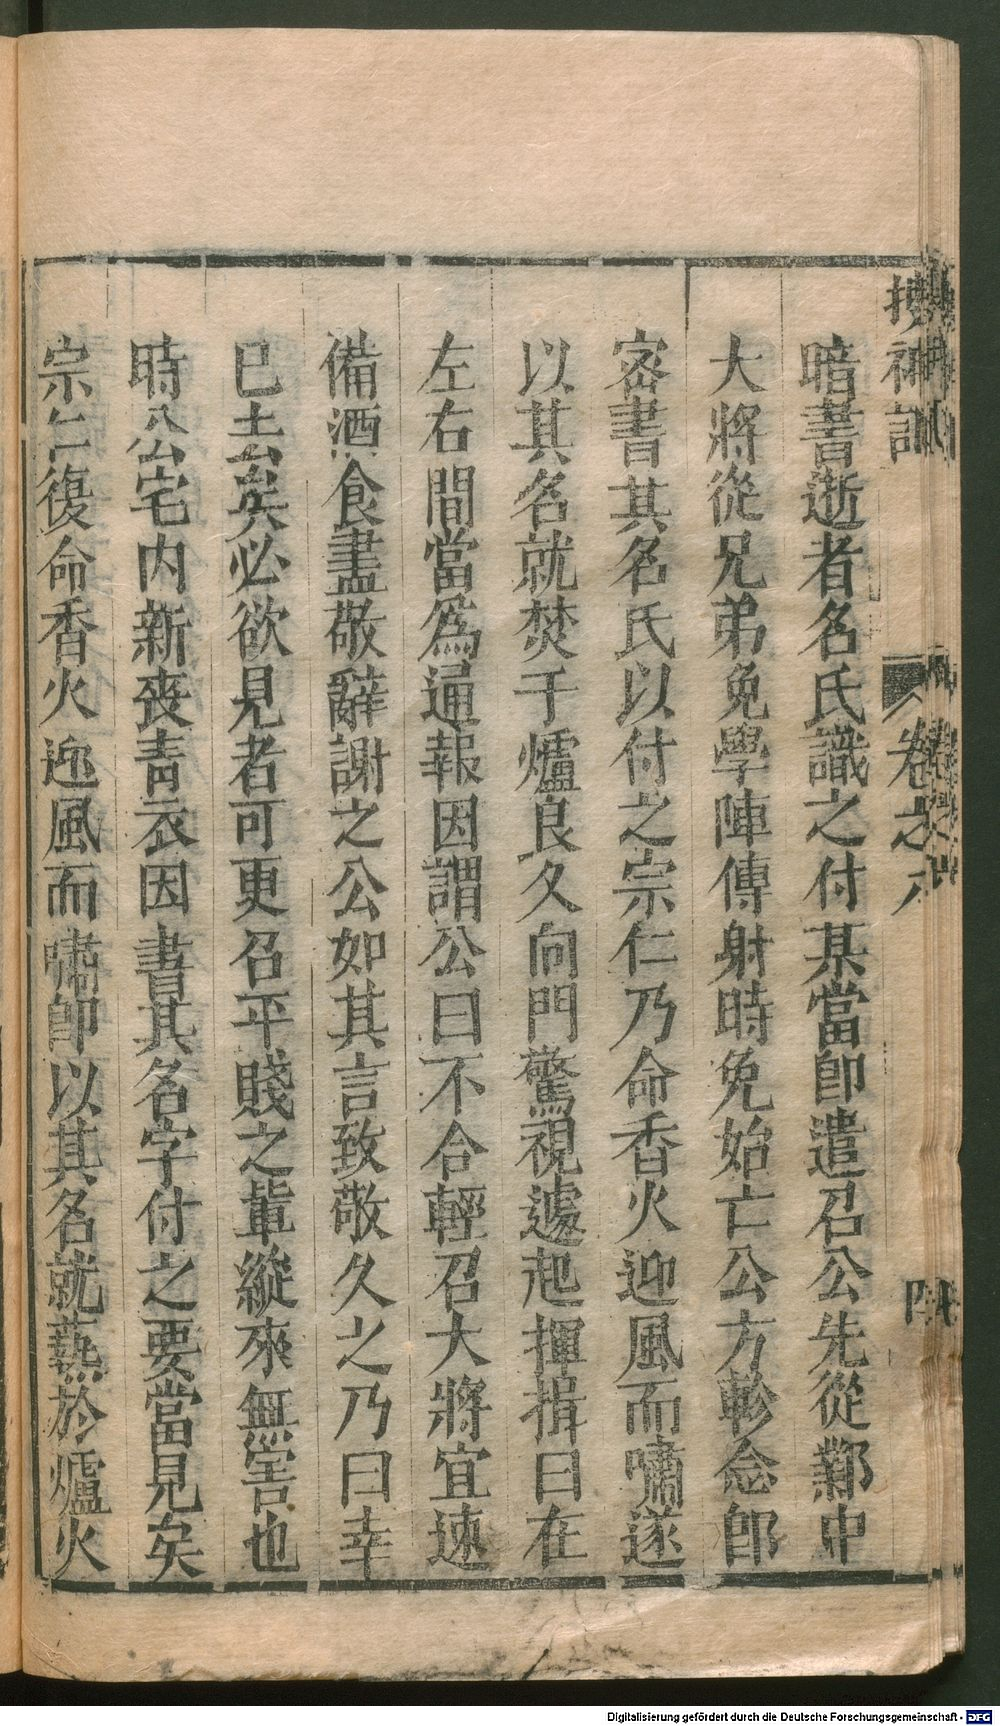 搜神記
卷之六
四
暗書逝者名氏識之付某當卽遣召公先從鄴中
大將從兄弟免學陣傳射時免始亡公方軫念卽
密書其名氏以付之宗仁乃命香火迎風而嘯遂
以其名就焚于爐良久向門驚視遽起揮揖曰在
左右間當爲通報因謂公曰不合輕召大將宜速
備酒食盡敬辭謝之公如其言致敬久之乃曰幸
已去矣必欲見者可更召平賤之輩縱來無害也
時公宅內新喪青衣因書其名字付之要當見矣
宗仁復命香火迎風而嘯卽以其名就爇於爐火
Digitalisierung gefördert durch die Deutsche Forschungsgemeinschaft - DFG